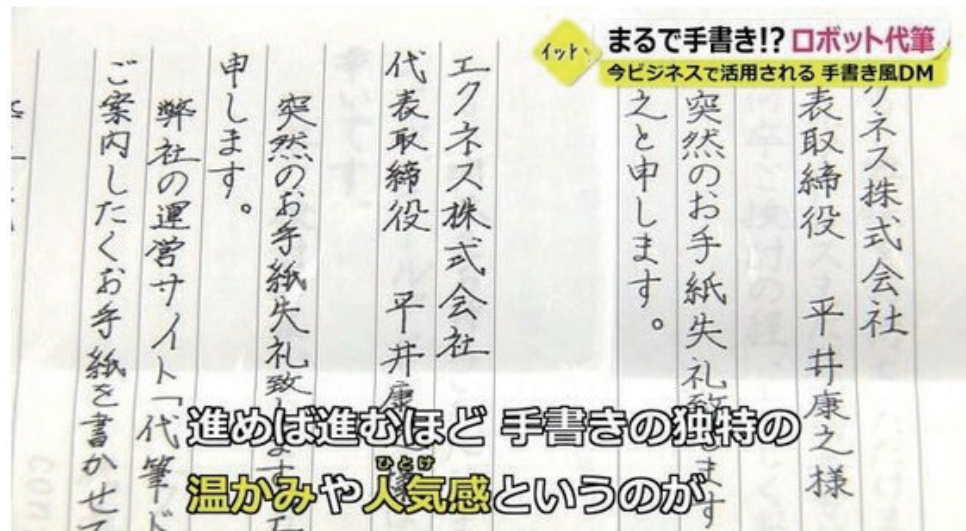 イット!
まるで手書き!? ロボット代筆
今ビジネスで活用される 手書き風DM
クネス株式会社
表取締役 平井康之様
突然のお手紙失礼致します
之と申します。
エクネス株式会社
代表取締役 平井康
突然のお手紙失礼致します
申します。
弊社の運営サイト「代筆ド
ご案内したくお手紙を書かせて
進めば進むほど 手書きの独特の
温かみや人気感というのが
ひとけ